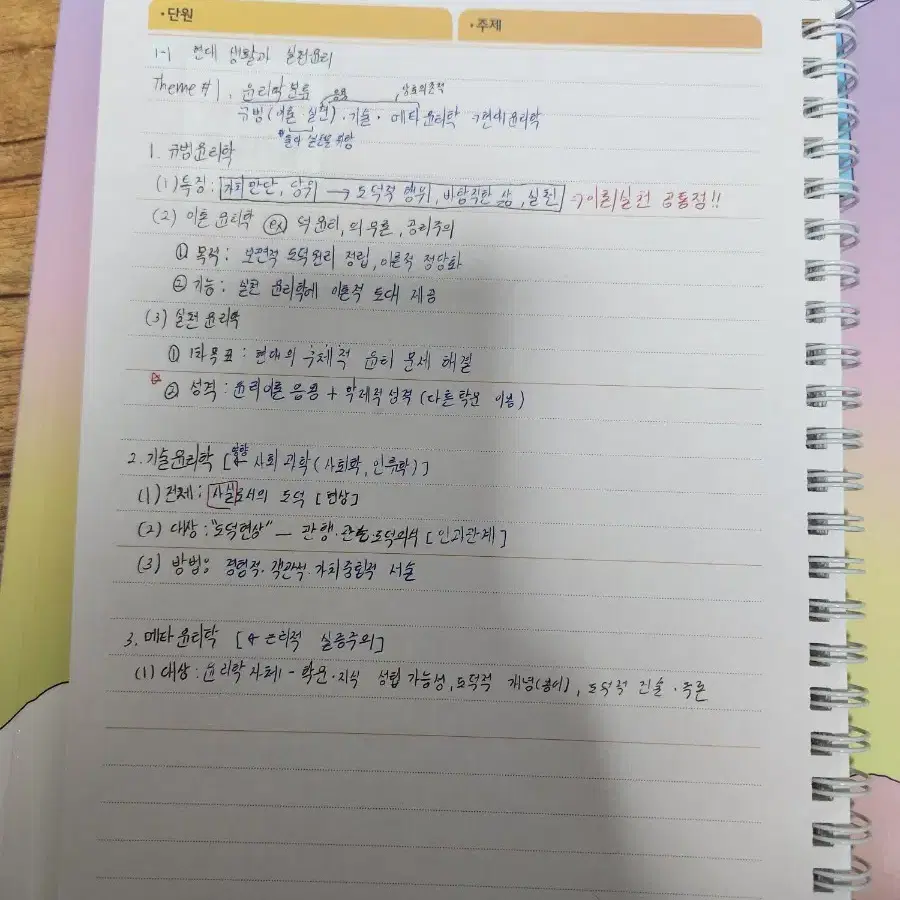 •단원
•주제
1-1 현대 생활과 실천윤리
Theme #1. 윤리학 분류 응용 상호의존적
규범(이론·실천)·기술·메타윤리학 → 현대윤리학
둘다 실천을 위함
1. 규범윤리학
(1) 특징: 가치판단, 당위 → 도덕적 행위, 바람직한 삶, 실천 ⇒ 이론/실천 공통점!!
(2) 이론 윤리학 ex 덕윤리, 의무론, 공리주의
① 목적: 보편적 도덕원리 정립, 이론적 정당화
② 기능: 실천 윤리학에 이론적 토대 제공
(3) 실천 윤리학
① 1차목표: 현대의 구체적 윤리 문제 해결
② 성격: 윤리이론 응용 + 학제적 성격 (다른 학문 이용)
2. 기술윤리학 [영향 ← 사회 과학(사회학, 인류학)]
(1) 전제: 사실로서의 도덕 [현상]
(2) 대상: "도덕현상" — 관행·관습·도덕의식 [인과관계]
(3) 방법: 경험적·객관적·가치중립적 서술
3. 메타윤리학 [← 논리적 실증주의]
(1) 대상: 윤리학 자체 - 학문·지식 성립 가능성, 도덕적 개념(용어), 도덕적 진술·추론